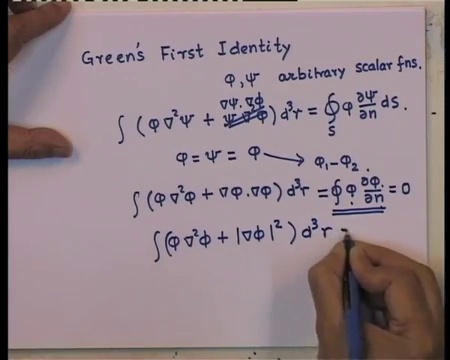 Green's First Identity
φ, ψ arbitrary scalar fns.
∇ψ·∇φ
∫ (φ∇²ψ + ψ∇²φ) d³r = ∮_S φ ∂ψ/∂n dS.
φ = ψ = φ → φ₁-φ₂.
∫ (φ∇²φ + ∇φ·∇φ) d³r = ∮ φ ∂φ/∂n = 0
∫ (φ∇²φ + |∇φ|²) d³r =